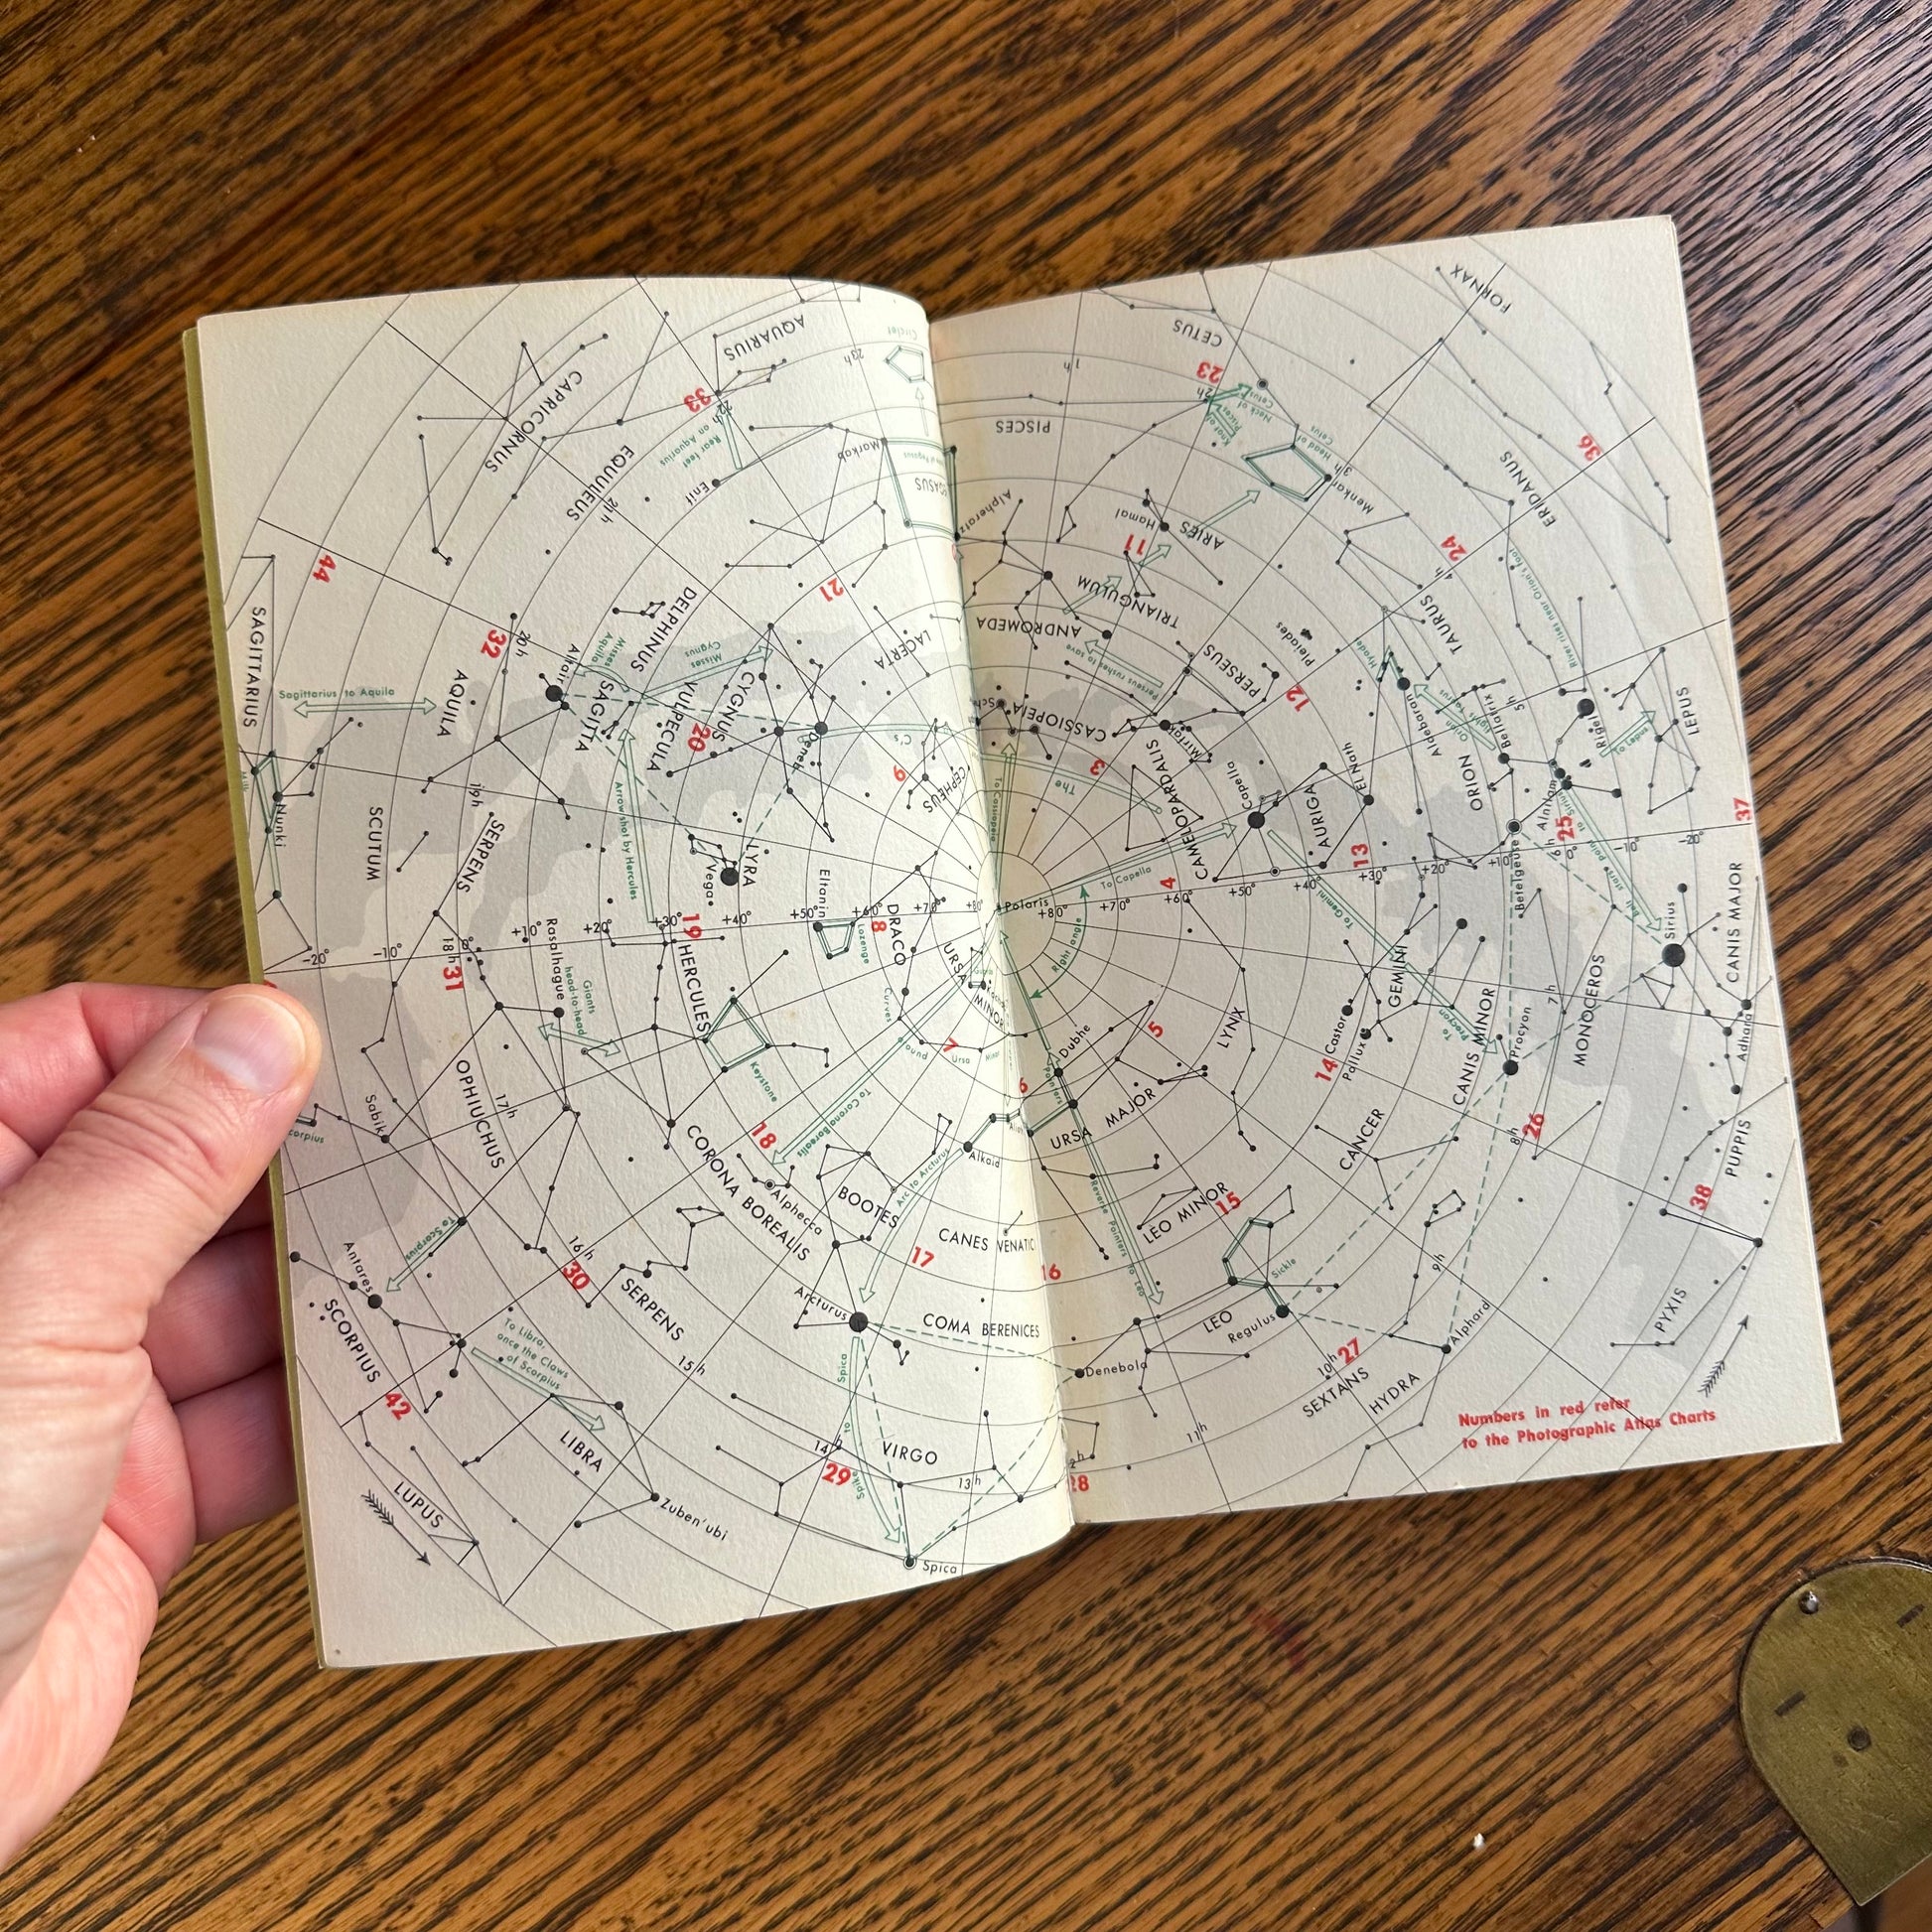 AQUARIUS
Circlet
23h
CAPRICORNUS
33
22h
Rear feet
on Aquarius
Markab
EQUULEUS
21h
Enif
44
21
SAGITTARIUS
DELPHINUS
LACERTA
32
20h
Altair
Misses
Aquila
Misses
Cygnus
Sagittarius to Aquila
AQUILA
SAGITTA
VULPECULA
CYGNUS
20
Deneb
C's
9
CEPHEUS
Nunki
SCUTUM
19h
SERPENS
Arrow shot by Hercules
LYRA
Vega
Eltanin
DRACO
8
Lozenge
-20°
-10°
0°
+10°
+20°
+30°
+40°
+50°
+60°
+70°
+80°
18h
31
Rasalhague
Giants
head-to-head
19
HERCULES
URSA
MINOR
Curves
around
Ursa
Minor
7
Keystone
To Corona Borealis
Sabik
OPHIUCHUS
17h
18
CORONA BOREALIS
Alphecca
BOOTES
Arc to Arcturus
Alkaid
CANES VENATICI
17
Antares
To Scorpius
16h
30
SERPENS
Arcturus
COMA BERENICES
SCORPIUS
42
To Libra,
once the Claws
of Scorpius
15h
LIBRA
LUPUS
Zuben'ubi
Spica
to
Spike
14h
29
VIRGO
13h
Spica
FORNAX
CETUS
1h
23
2h
Neck of
Cetus
Knot of
Pisces
Head of
Cetus
PISCES
3h
Menkar
36
ERIDANUS
Alpheratz
Hamal
ARIES
11
24
4h
River rises near Orion's foot
TRIANGULUM
ANDROMEDA
Perseus rushes to save
PERSEUS
Pleiades
12
Hyades
TAURUS
Aldebaran
Orion
fights Taurus
Bellatrix
5h
Rigel
To Lepus
LEPUS
CASSIOPEIA
Mirfak
3
The
CAMELOPARDALIS
Capella
AURIGA
El Nath
ORION
Alnilam
25
6h
Belt stars point to Sirius
37
13
To Cassiopeia
To Capella
4
Polaris
+80°
+70°
+60°
+50°
+40°
+30°
+20°
+10°
0°
-10°
-20°
Betelgeuse
Right angle
To Gemini
Sirius
CANIS MAJOR
Dubhe
Pointers
5
LYNX
GEMINI
Castor
Pollux
14
To
Procyon
CANIS MINOR
Procyon
7h
MONOCEROS
Adhara
6
URSA MAJOR
CANCER
8h
26
PUPPIS
38
Reverse Pointers to Leo
LEO MINOR
15
16
Sickle
LEO
Regulus
9h
Alphard
PYXIS
Denebola
10h
27
SEXTANS
HYDRA
11h
28
Numbers in red refer
to the Photographic Atlas Charts